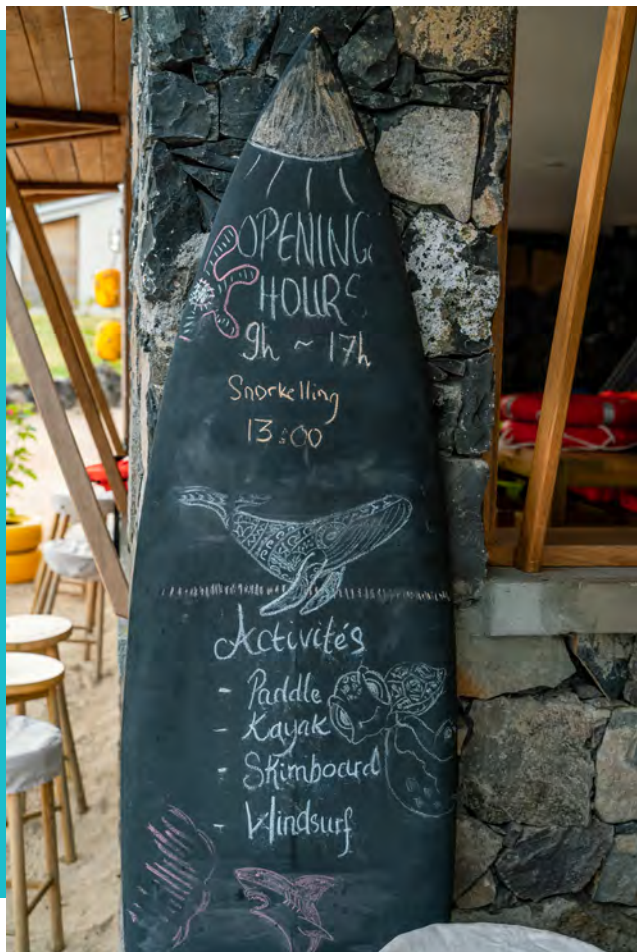 OPENING
HOURS
9h ~ 17h
Snorkelling
13:00
Activités
- Paddle
- Kayak
- Skimboard
- Windsurf